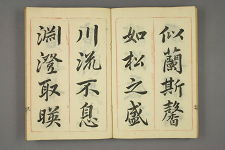 似蘭斯馨
如松之盛
川流不息
淵澄取暎